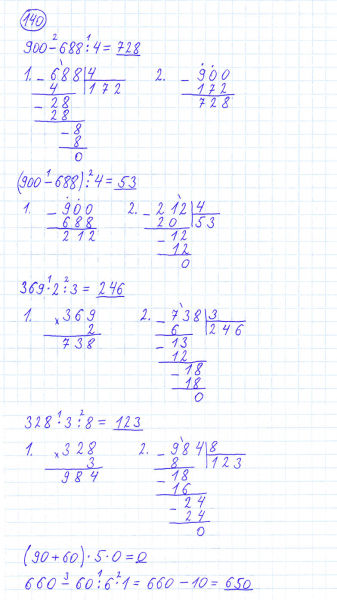 140
900 - 688 : 4 = 728
1. - 688 | 4
4 | 172
- 28
28
- 8
8
0
2. - 900
172
728
(900 - 688) : 4 = 53
1. - 900
688
212
2. - 212 | 4
20 | 53
- 12
12
0
369 · 2 : 3 = 246
1. × 369
2
738
2. - 738 | 3
6 | 246
- 13
12
- 18
18
0
328 · 3 : 8 = 123
1. × 328
3
984
2. - 984 | 8
8 | 123
- 18
16
- 24
24
0
(90 + 60) · 5 · 0 = 0
660 - 60 : 6 · 1 = 660 - 10 = 650